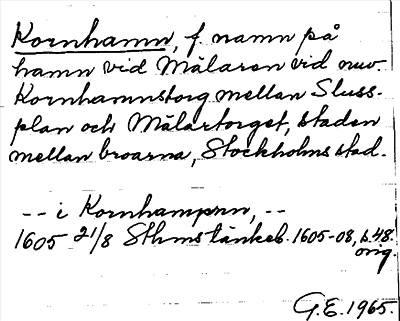 Kornhamn, f. namn på
hamn vid Mälaren vid nuv.
Kornhamnstorg mellan Sluss-
plan och Mälartorget, staden
mellan broarna, Stockholms stad.
-- i Kornhampnn, --
1605 21/8 Sthms tänkeb. 1605-08, s. 48.
orig.
G.E. 1965.